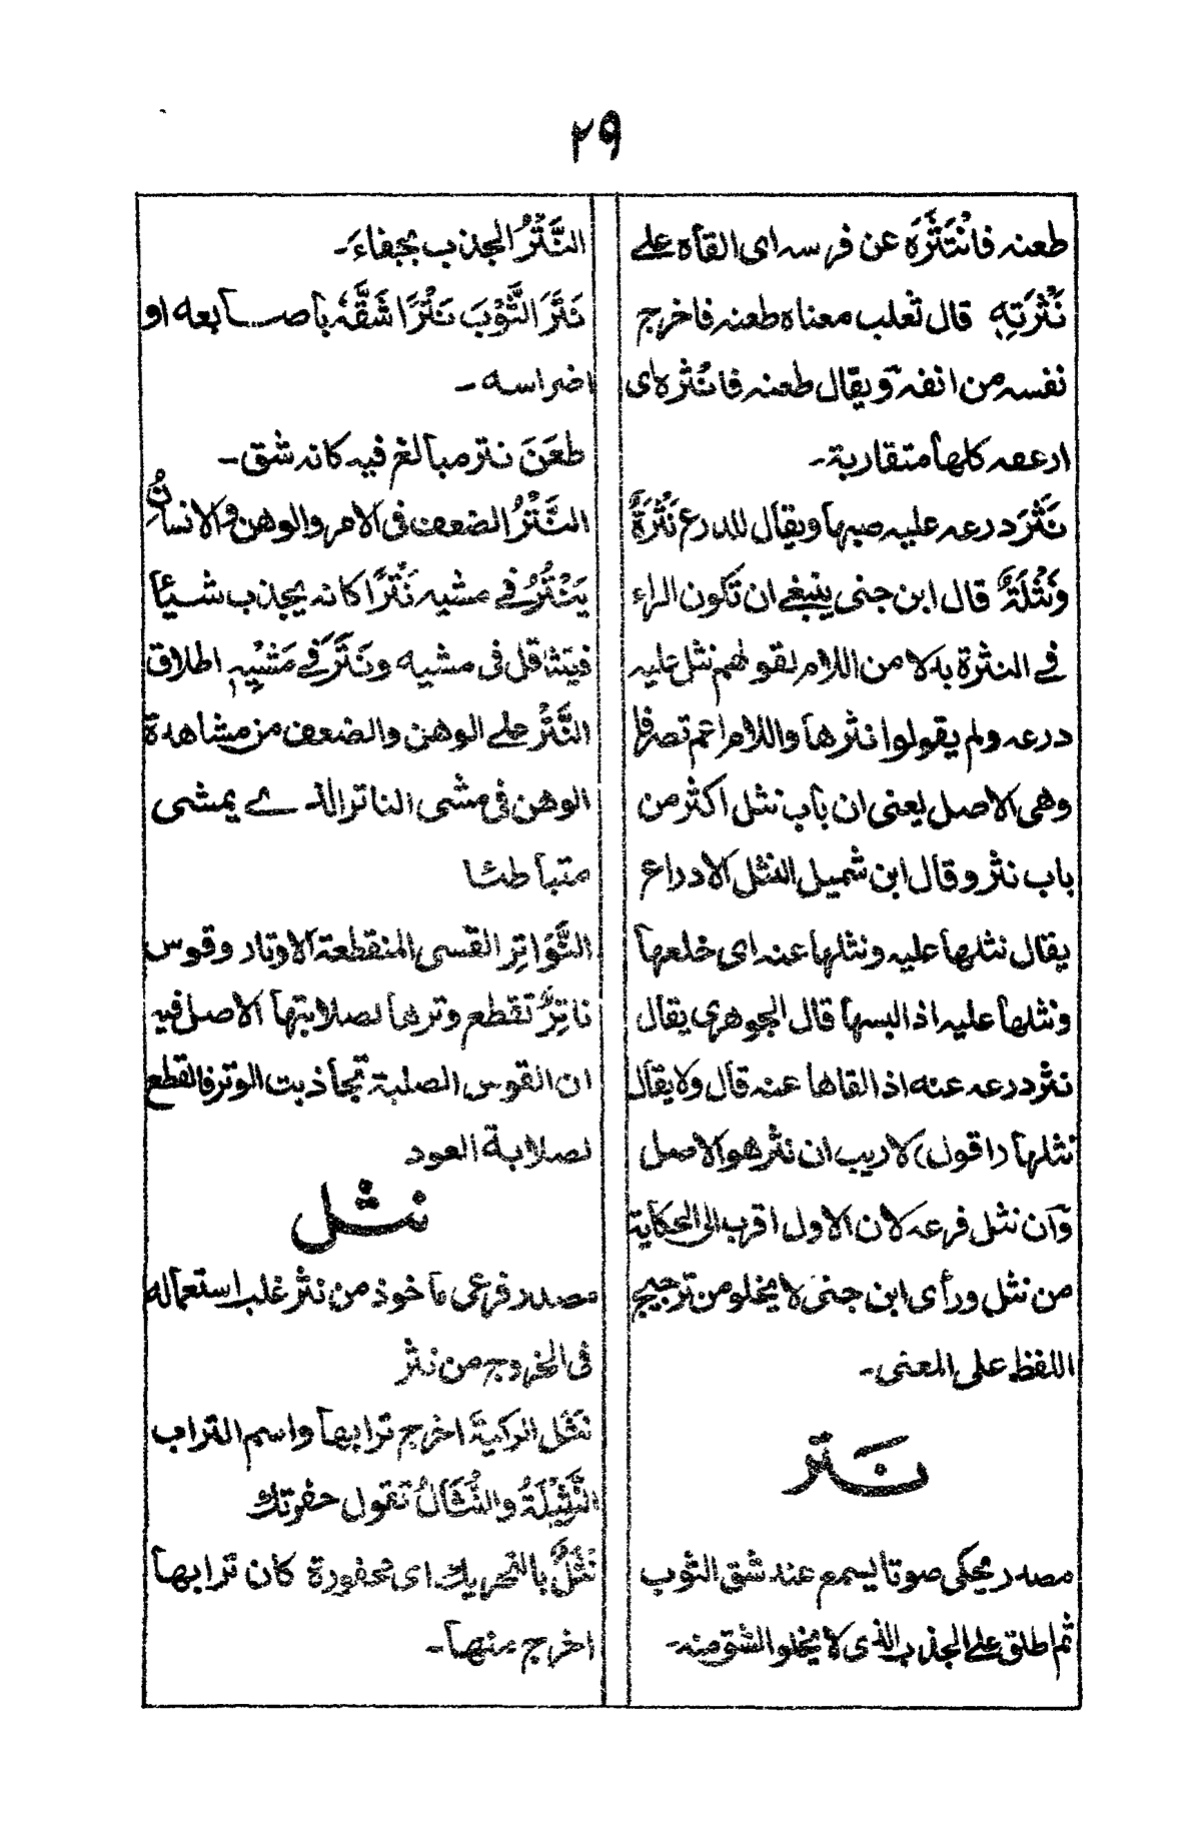 ٢٩
طعنه فانْتَثَرَه عن فرسه اى القاه على
نَثْرَتِهٖ قال ثعلب معناه طعنه فاخرج
نفسه من انفه ويقال طعنه فانثره اى
ارعفه كلها متقاربة۔
نَثَرَ درعه عليه صبها ويقال للدرع نَثْرَةٌ
وَنَثْلَةٌ قال ابن جنى ينبغى ان تكون الراء
فى النثرة بدلا من اللام لقولهم نثل عليه
درعه ولم يقولوا نثرها واللام اعم تصرفا
وهى الاصل يعنى ان باب نثل اكثر من
باب نثر وقال ابن شميل النثل الادراع
يقال نثلها عليه ونثلها عنه اى خلعها
ونثلها عليه اذا البسها قال الجوهرى يقال
نثر درعه عنه اذا القاها عنه قال ولا يقال
نثلها (اقول) لا ريب ان نثر هو الاصل
وان نثل فرعه لان الاول اقرب الى الحكاية
من نثل ورأى ابن جنى لا يخلو من ترجيح
اللفظ على المعنى۔
نَتر
مصدر يحكى صوتا يسمع عند شق الثوب
ثم اطلق على الجذب الذى لا يخلو الشق منه۔
النَّتْرُ الجذب بجفاءَ۔
نَتَرَ الثَّوْبَ نَتْرًا شَقَّهٗ باصابعه او
اضراسه۔
طعَنَ نتر مبالغ فيه كانه شق۔
النَّتْرُ الضعف فى الامر والوهن والانسانُ
يَنْتُرُ فى مشيه نَتْرًا كانه يجذب شيئا
فيتثاقل فى مشيه ونَتَرَ فى مَشْيِهٖ اطلاق
النَّتْرُ على الوهن والضعف من مشاهدة
الوهن فى مشى الناتر الذى يمشى
متباطئا
النَّوَاتِر القسى المنقطعة الاوتار وقوس
ناتِرٌ تقطع وترها لصلابتها الاصل فيه
ان القوس الصلبة تجاذبت الوتر فالقطع
لصلابة العود
نثل
مصدر فرعى ماخوذ من نثر غلب استعماله
فى الخروج من نثر
نَثَل الركيةَ اخرج ترابها واسم التراب
النَّثِيْلَةُ والنُّثَالُ تقول حفرتك
نَثَلٌ بالتحريك اى محفورة كان ترابها
اخرج منها۔